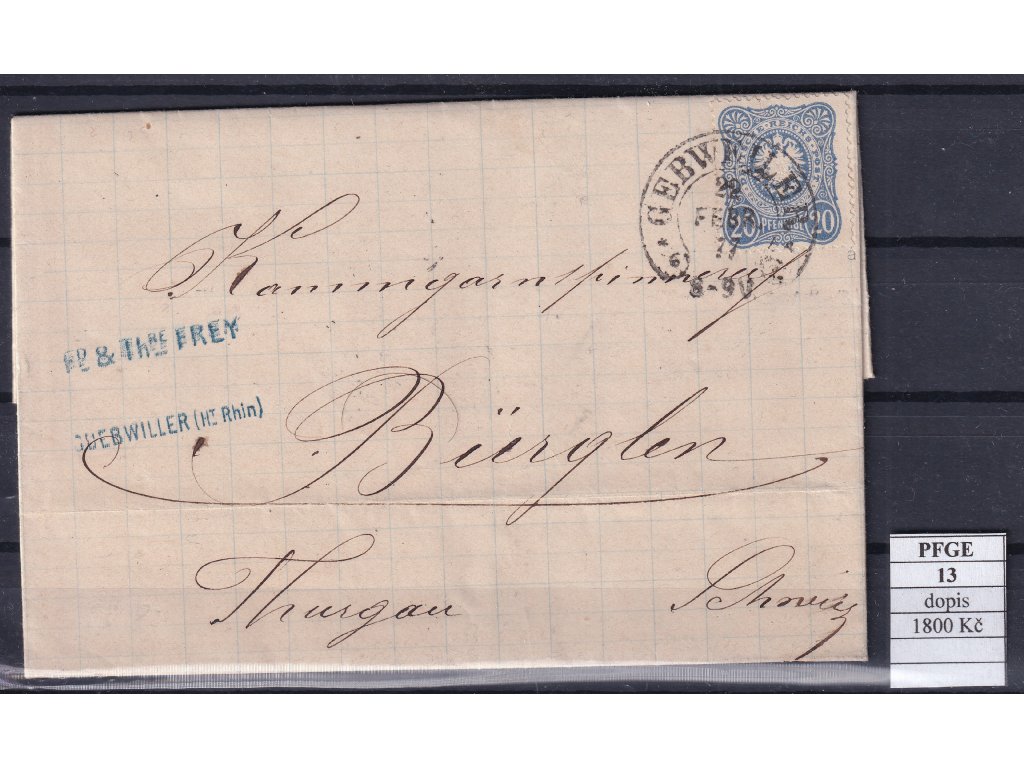 GEBWEILER
22
FEBR.
77
8-9V
20 PFENNIGE 20
Kammgarnspinnerei
Fd & Thre FREY
GUEBWILLER (Ht Rhin)
Bürglen
Thurgau Schweiz
PFGE
13
dopis
1800 Kč